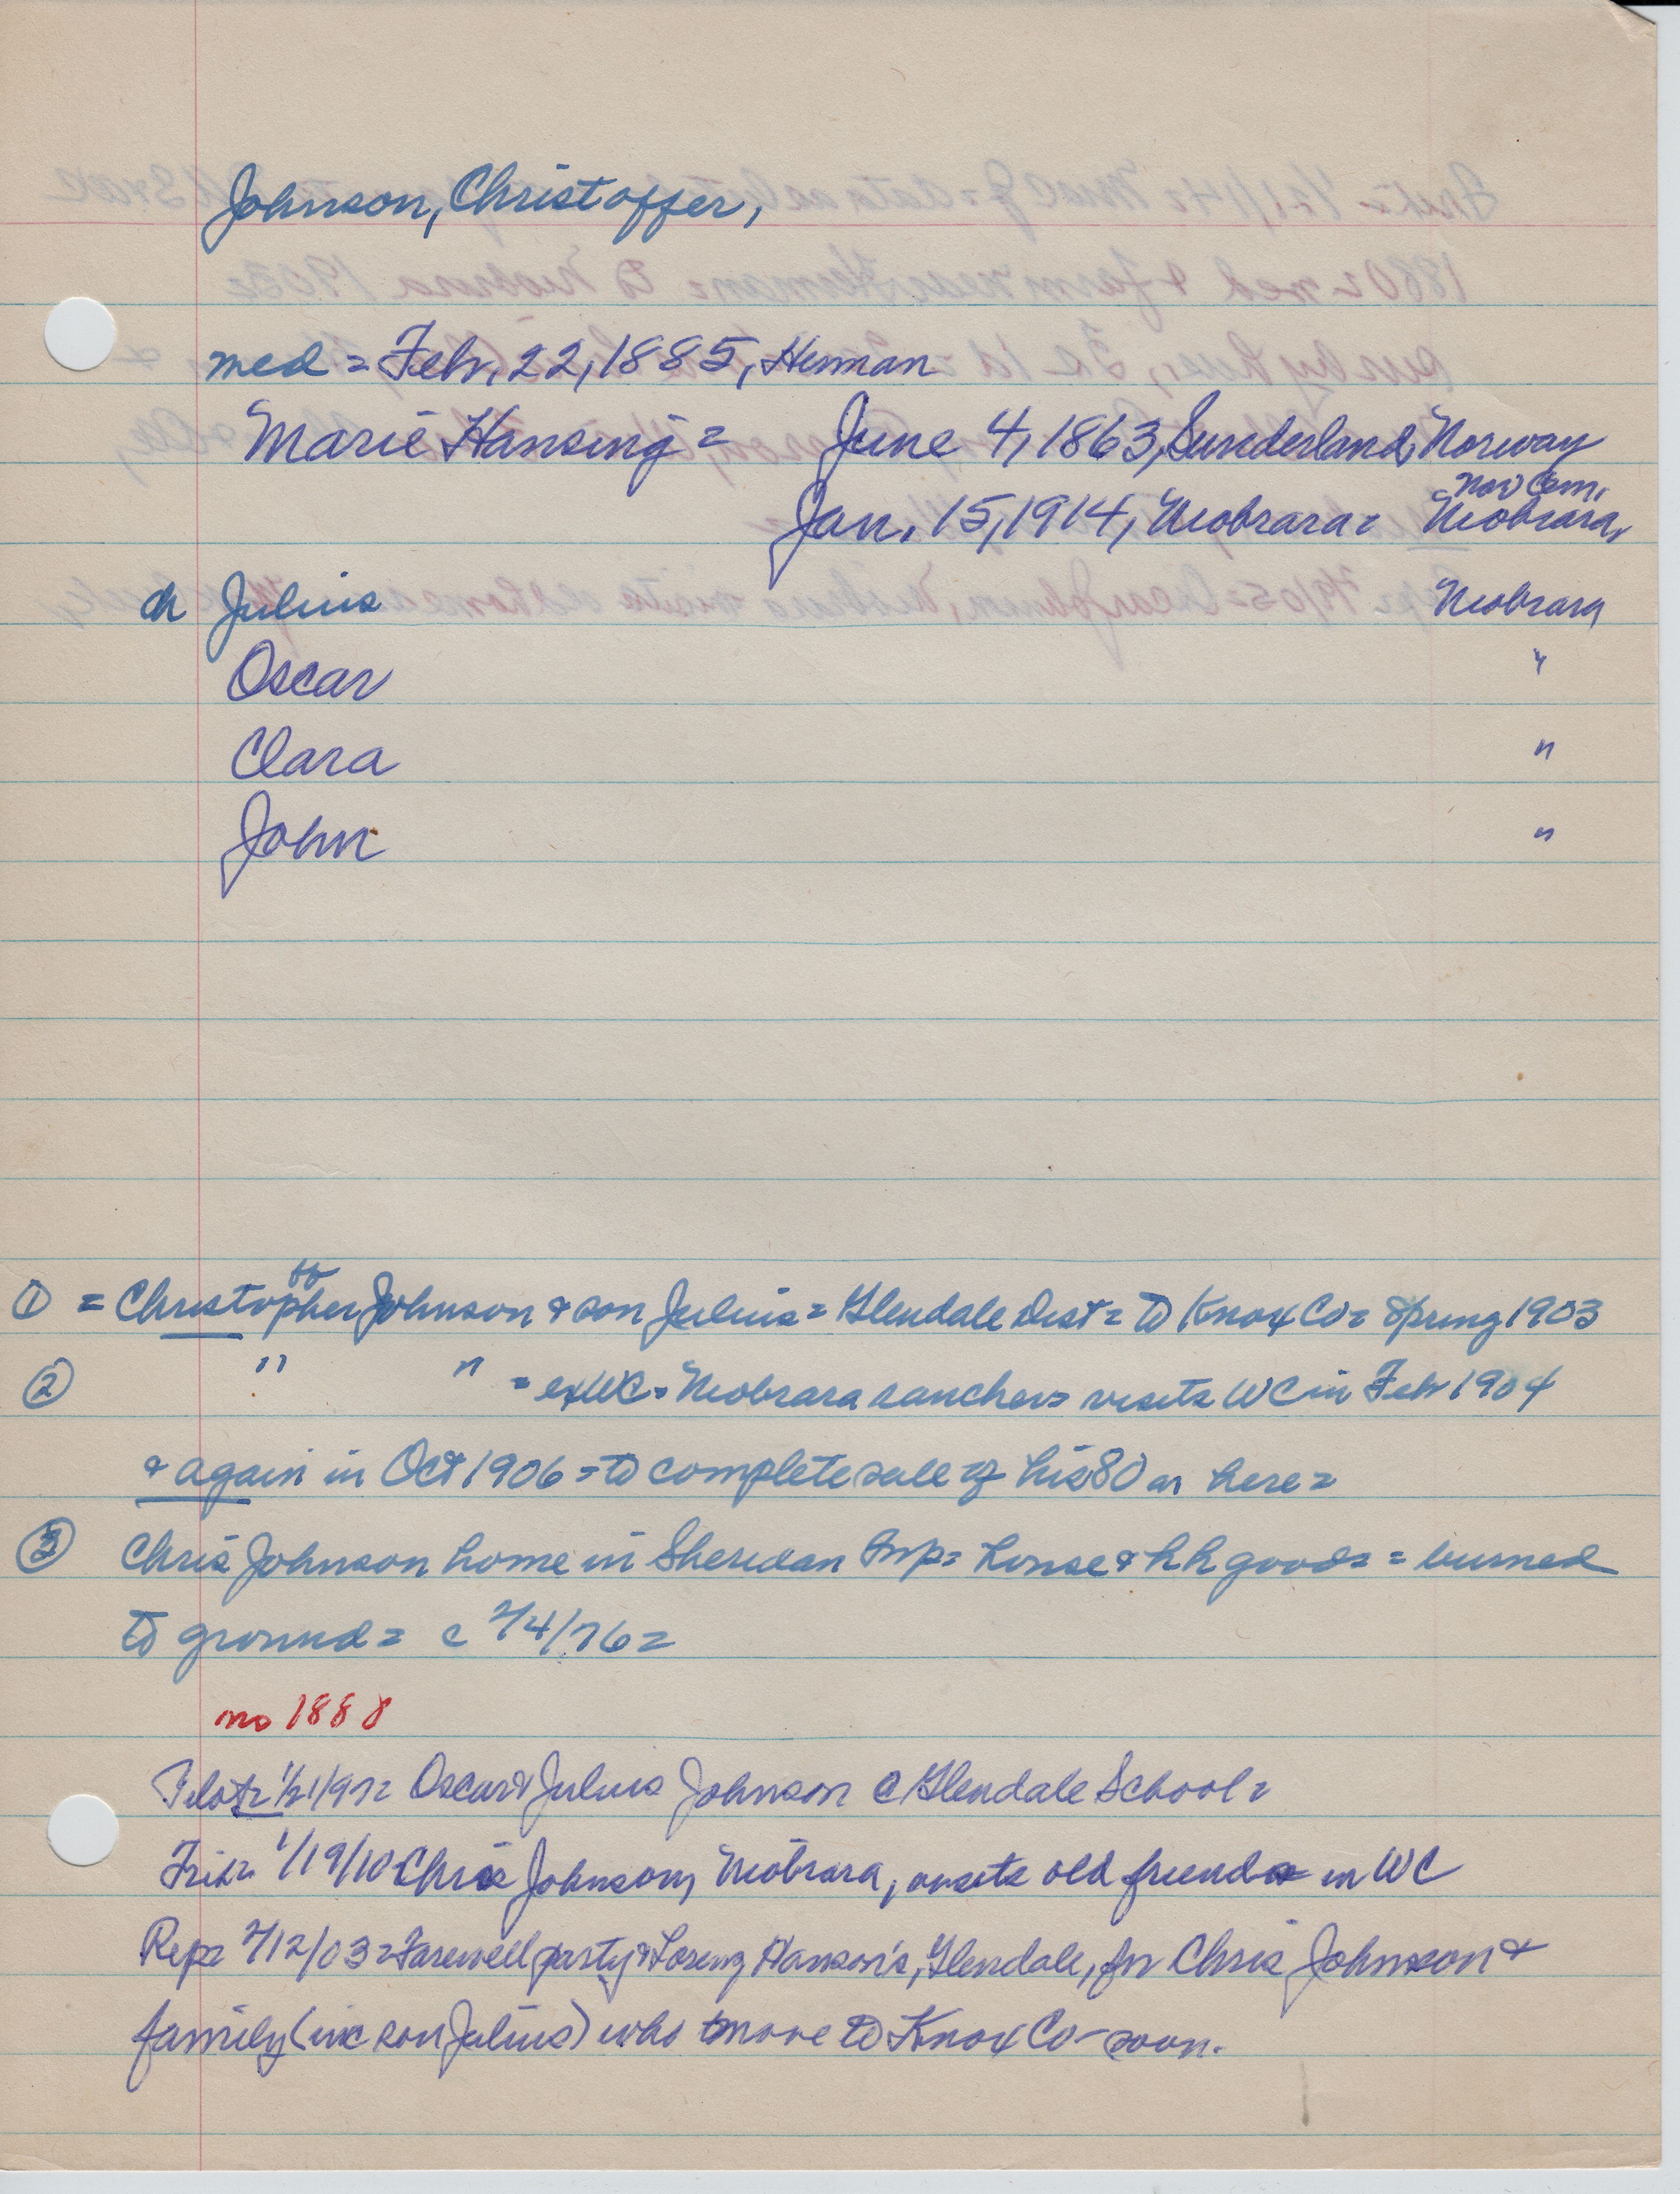 Johnson, Christoffer,
med = Feb, 22, 1885, Herman
Marie Hansing = June 4, 1863, Sunderland, Norway
Nor Cem.
Jan. 15, 1914, Niobrara = Niobrara,
ch Julius Niobrara
Oscar "
Clara "
John "
ff
① = Christopher Johnson & son Julius = Glendale Dist = to Knox Co = Spring 1903
② " " = exWC = Niobrara rancher = visits WC in Feb 1904
& again in Oct 1906 = to complete sale of his 80 a here =
③ Chris Johnson home in Sheridan Twp = house & hh goods = burned
to ground = c 2/4/76 =
no 1888
1/21/97 = Oscar & Julius Johnson @ Glendale School =
1/19/10 Chris Johnson, Niobrara, visits old friends in WC
Rep = 2/12/03 = Farewell party @ Lorenz Hanson's, Glendale, for Chris Johnson &
family (inc son Julius) who move to Knox Co - soon.